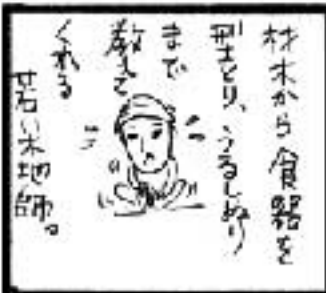 材木から食器を
型どり、うるしぬり
まで
教えて
くれる
若い木地師。